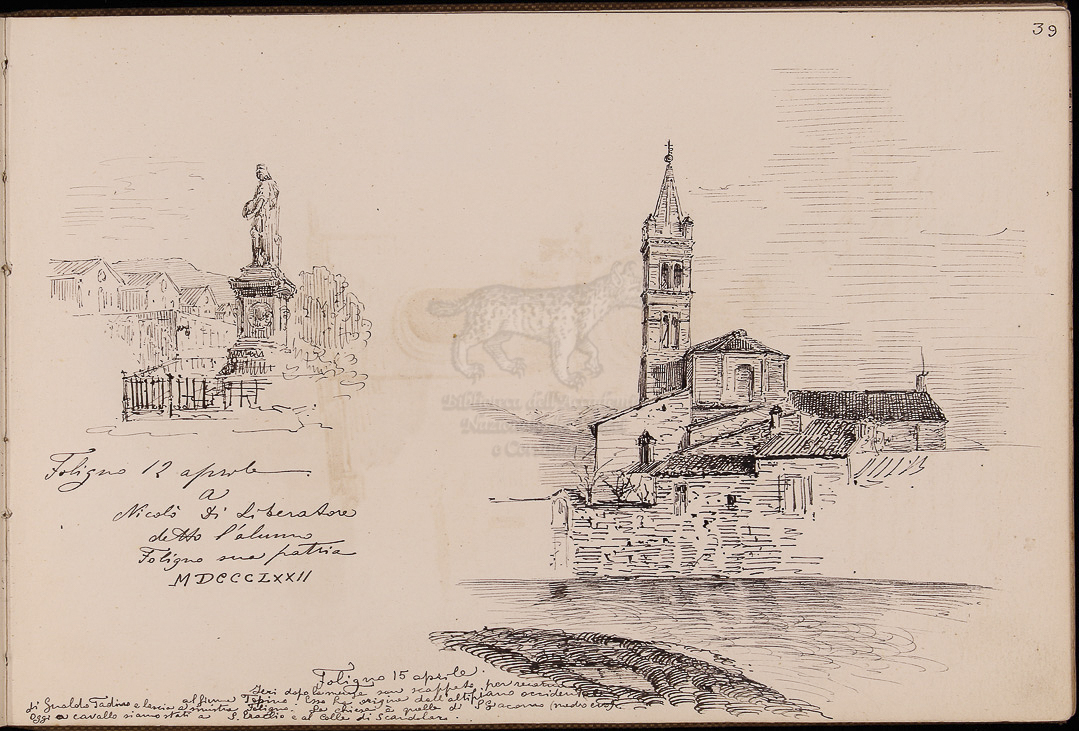 39
Foligno 12 aprile
a
Nicolò Di Liberatore
detto l'alunno
Foligno sua patria
MDCCCLXXII
Foligno 15 aprile
Ieri dopo la mensa son scappato per recarmi
al fiume Topino. Esso ha origine dall'altipiano occidentale
di Gualdo Tadino e lascia a sinistra Foligno. La chiesa è quella di S. Giacomo (medio evo).
Oggi a cavallo siamo stati a S. Eraclio e al Colle di Scandolaro.